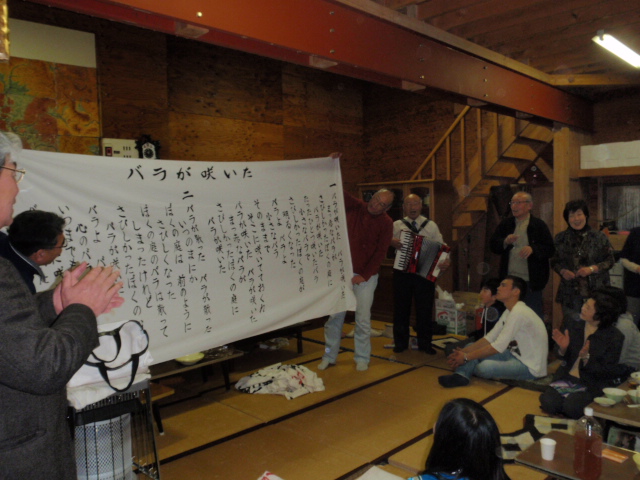 バラが咲いた
一 バラが咲いた バラが咲いた
まっ赤なバラが
さびしかったぼくの庭に
バラが咲いた
小さなバラで
さびしかったぼくの庭が
明るくなった
バラよバラよ
小さなバラ
そのままで
そこに咲いてておくれ
バラが咲いた バラが咲いた
さびしかったぼくの庭に
バラが咲いた
二 バラが散った バラが散った
いつのまにか
ぼくの庭は 前のように
さびしくなった
ぼくの庭のバラは散って
しまったけれど
さびしかったぼくの
バラが
バラよ
心の